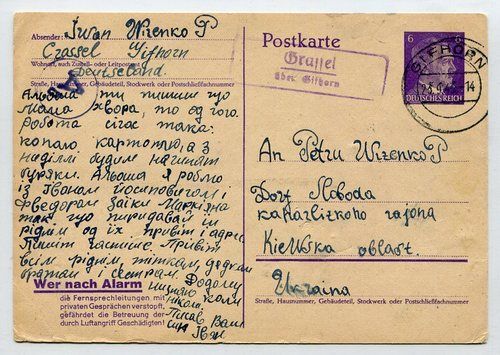 Absender: Iwan Wizenko P
Grassel Gifhorn
Wohnort, auch Zustell- oder Leitpostamt
Deutschland.
Straße, Hausnummer, Gebäudeteil, Stockwerk oder Postschließfachnummer
ти пишиш що
мама хвора, то од чого.
робота січас така.
копаю картоплю, а з
неділі будим начинать
буряки. Альоша я роблю
із Іваном Йосиповичом і
Федором
так що передавай
рідним од їх привіт і адрес.
Пишіт частіше. Привіт
всім рідним, тіткам, дядкам
братам і сестрам.
Додому
Писав Ваш
син
Wer nach Alarm
die Fernsprechleitungen mit
privaten Gesprächen verstopft,
gefährdet die Betreuung der
durch Luftangriff Geschädigten!
Postkarte
Grassel
über Gifhorn
6
DEUTSCHES REICH
GIFHORN
14
An Petru Wizenko P
Dorf Sloboda
kaharlizkoho rajona
Kiewska oblast.
Ukraina
Straße, Hausnummer, Gebäudeteil, Stockwerk oder Postschließfachnummer